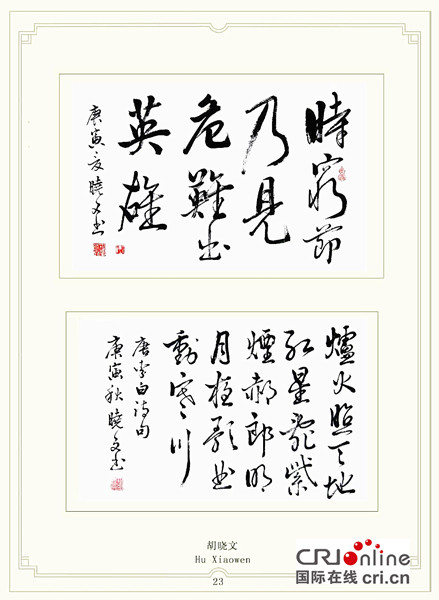 時窮節
乃見
危難出
英雄
庚寅夏曉文书
爐火照天地
红星亂紫
煙赧郎明
月夜歌曲
動寒川
唐李白诗句
庚寅秋曉文书
胡晓文
Hu Xiaowen
23
CRIonline
国际在线 cri.cn